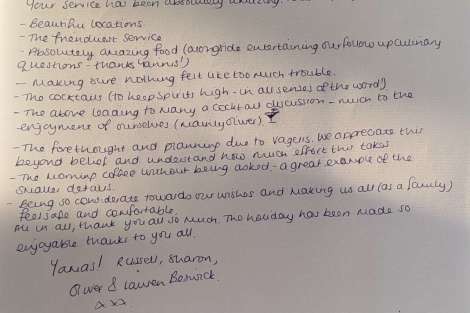 Your service has been absolutely amazing.
- Beautiful locations.
- The friendliest service
- Absolutely amazing food (alongside entertaining our follow up culinary
questions - thanks Yannis!)
- Making sure nothing felt like too much trouble.
- The cocktails (to keep spirits high - in all senses of the word!)
- The above leading to many a cocktail discussion - much to the
enjoyment of ourselves (mainly Oliver)
- The forethought and planning due to We appreciate this
beyond belief and understand how much effort this takes
- The morning coffee without being asked - a great example of the
smaller details.
- Being so considerate towards our wishes and making us all (as a family)
feel safe and comfortable.
All in all, thank you all so much. The holiday has been made so
enjoyable thanks to you all.
Yamas! Russell, Sharon,
Oliver & Lauren Beswick.
xxx